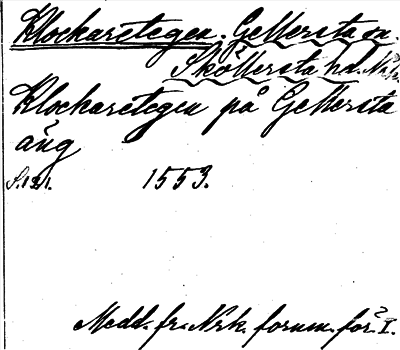 Klockaretegen. Gellersta sn.
Sköllersta hd. Nrk.
Klockaretegen på Gellersta
äng
S. 131. 1553.
Medd. fr. Nrk. fornm. för. I.